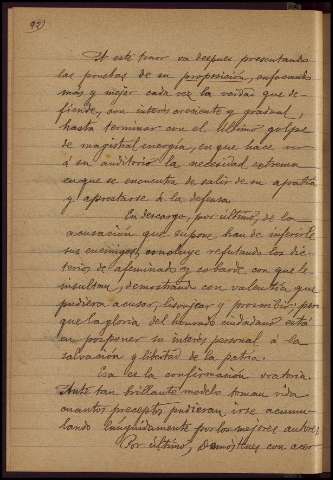 92)
A este tenor va despues presentando
las pruebas de su proposición, enfocando
más y mejor cada vez la verdad que de-
fiende, con interés creciente y gradual,
hasta terminar con el último golpe
de magistral energia, en que hace ver
á su auditorio la necesidad extrema
en que se encuentra de salir de su apatía
y aprestarse á la defensa.
En descargo, por último, de la
acusación que supone han de inferirle
sus enemigos, concluye refutando los dic-
terios de afeminado y cobarde con que le
insultan, demostrando con valentía que
pudiera acusar, lisonjear y proscribir, pero
que la gloria del honrado ciudadano está
en posponer su interés personal á la
salvación y libertad de la patria.
Esa es la confirmación oratoria.
Ante tan brillante modelo toman vida
cuantos preceptos pudieran irse acumu-
lando lánguidamente por los mejores autores.
Por último, Demóstenes con acer-